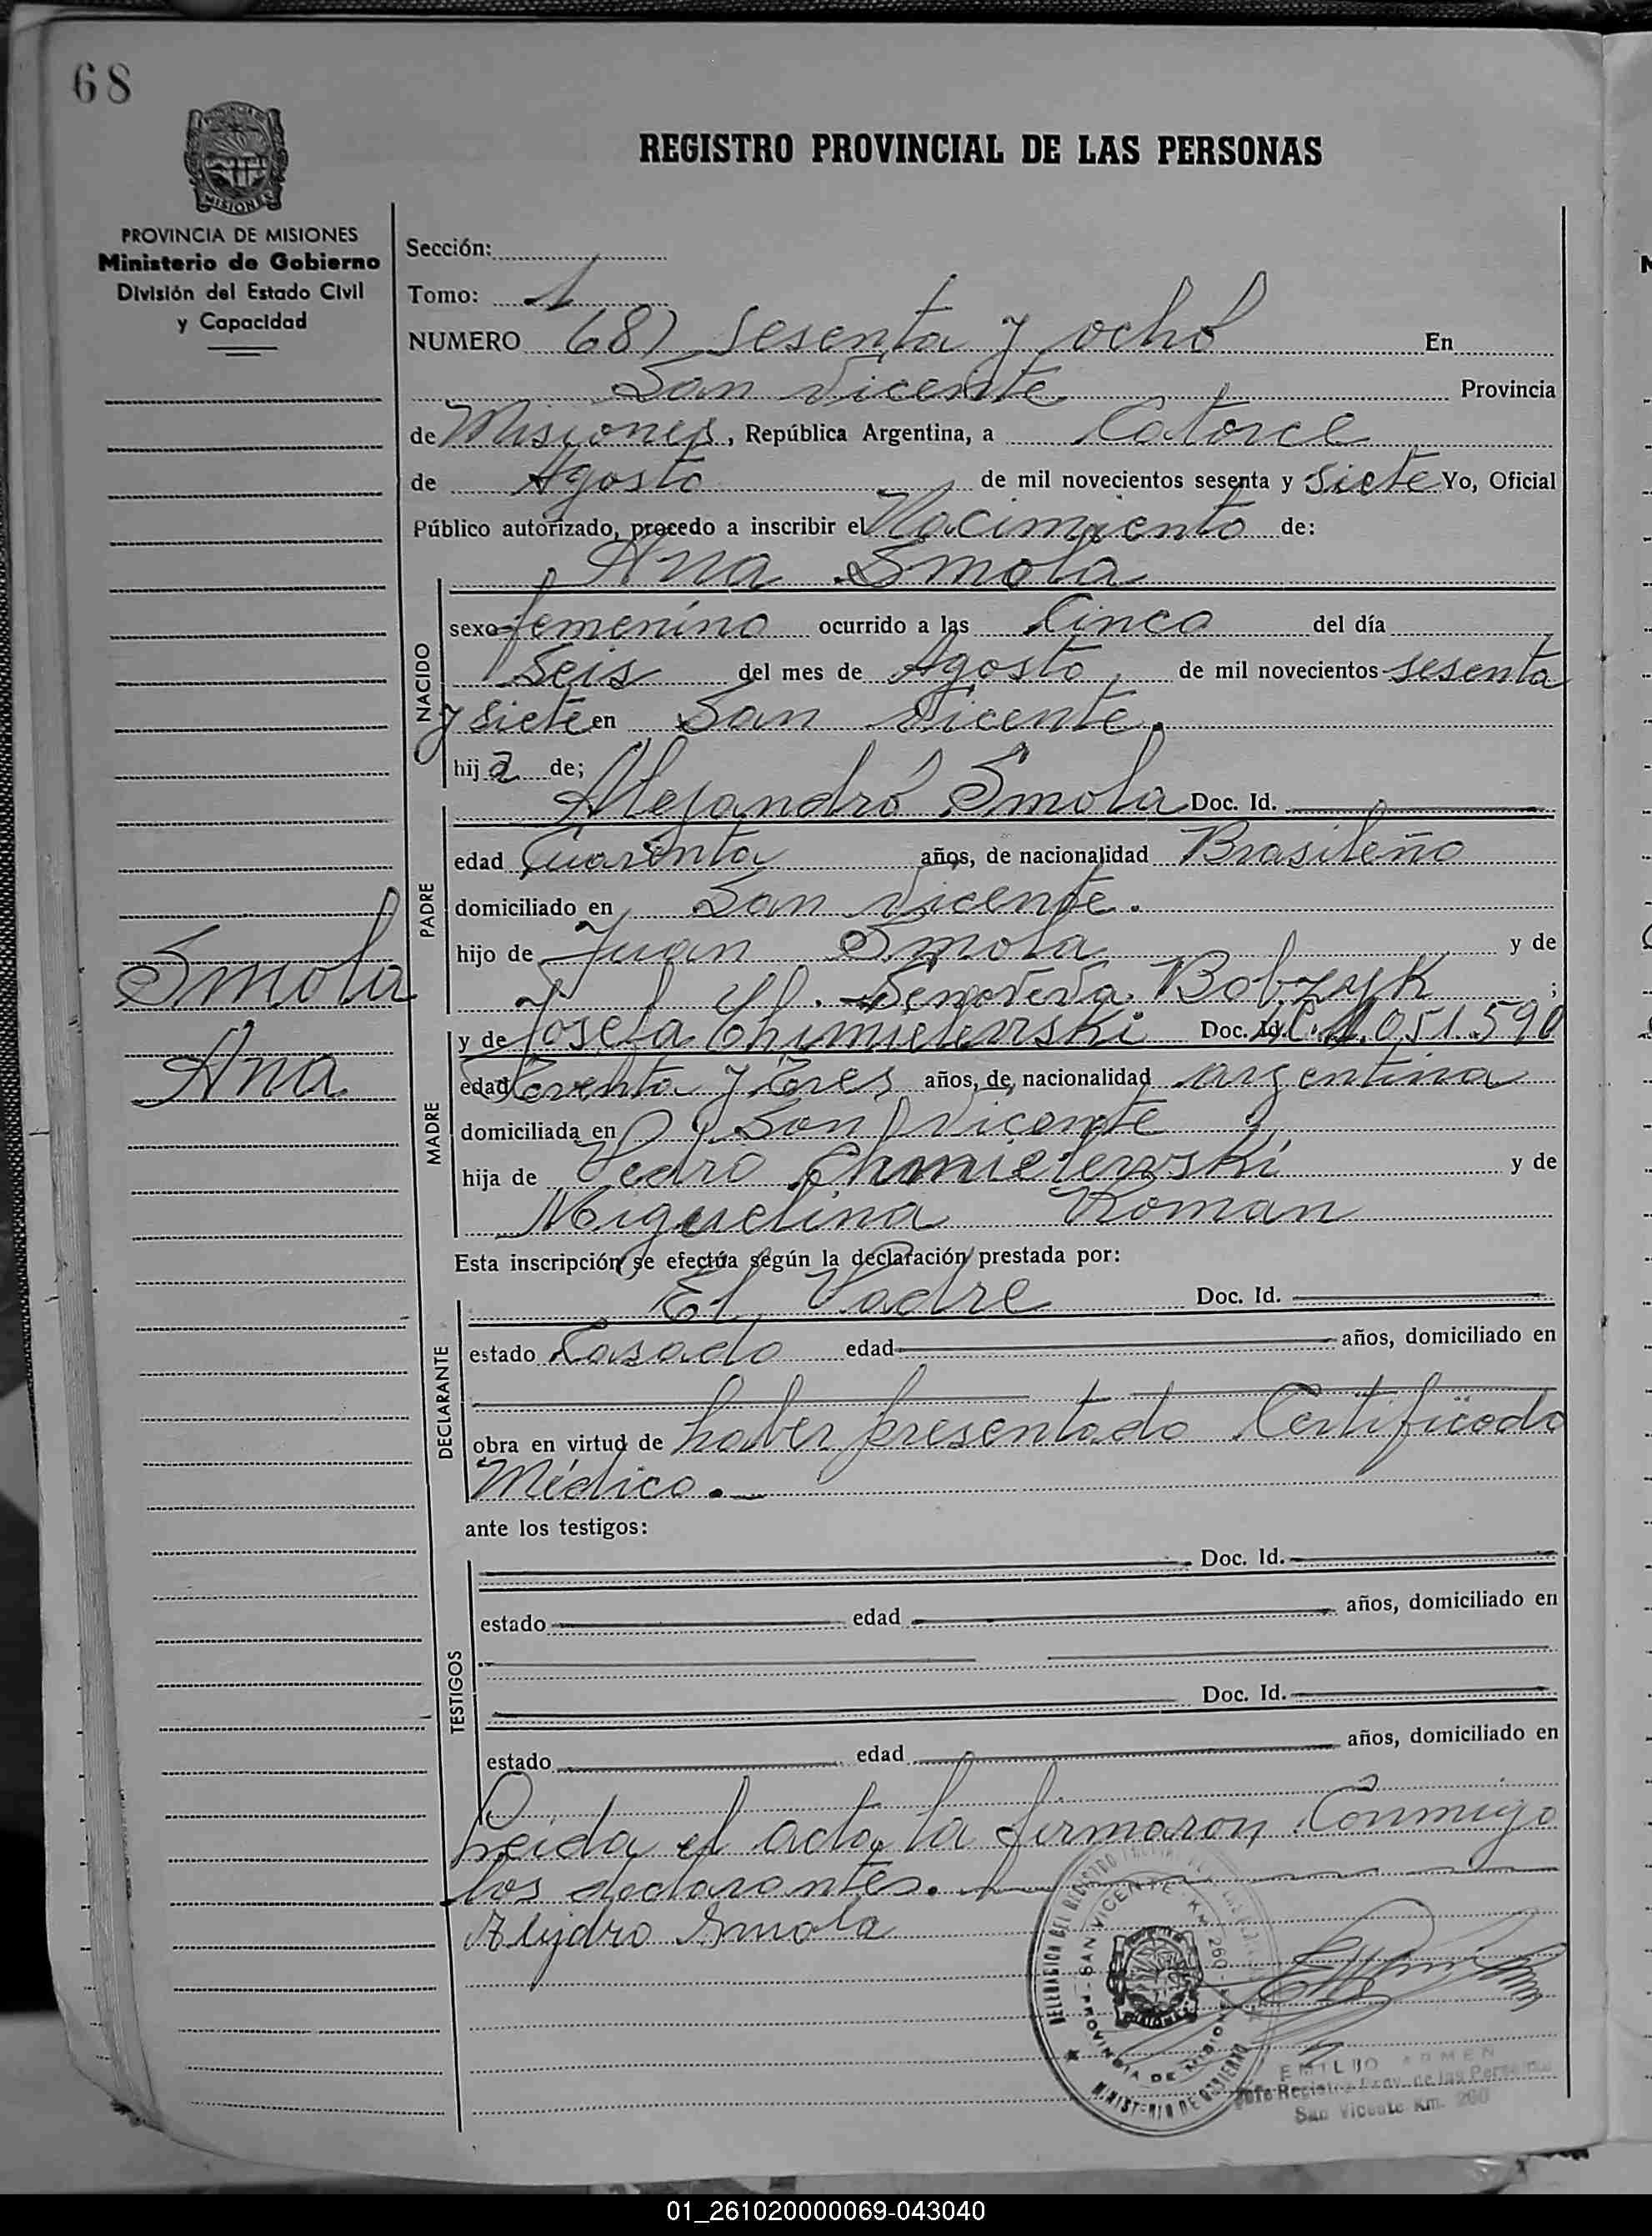 68
MISIONES
PROVINCIA DE MISIONES
Ministerio de Gobierno
División del Estado Civil
y Capacidad
REGISTRO PROVINCIAL DE LAS PERSONAS
Sección:
Tomo: 1
NUMERO 68) Sesenta y ocho En
San Vicente Provincia
de Misiones, República Argentina, a Catorce
de Agosto de mil novecientos sesenta y siete Yo, Oficial
Público autorizado, procedo a inscribir el Nacimiento de:
Ana Smola
NACIDO
sexo femenino ocurrido a las Cinco del día
Seis del mes de Agosto de mil novecientos sesenta
y siete en San Vicente.
hija de;
Alejandro Smola Doc. Id.
PADRE
edad Cuarenta años, de nacionalidad Brasileño
domiciliado en San Vicente.
hijo de Juan Smola y de
Genoveva Bobzyk ;
Smola
Ana
MADRE
y de Josefa Chimielewski Doc. Id. 1.051.590
edad Treinta y Tres años, de nacionalidad argentina
domiciliada en San Vicente
hija de Pedro Chmielewski y de
Miguelina Roman
Esta inscripción se efectúa según la declaración prestada por:
El Padre Doc. Id.
DECLARANTE
estado Casado edad años, domiciliado en
obra en virtud de haber presentado Certificado
Médico.
ante los testigos:
TESTIGOS
Doc. Id.
estado edad años, domiciliado en
Doc. Id.
estado edad años, domiciliado en
Leida el acta, la firmaron Conmigo
los declarantes.
Alejdro Smola
DELEGACION DEL REGISTRO
SAN VICENTE - KM 260
PROVINCIA DE MISIONES
MINISTERIO DE GOBIERNO
EMILIO ARMEN
Jefe Registro Prov. de las Personas
San Vicente Km. 260
01_261020000069-043040